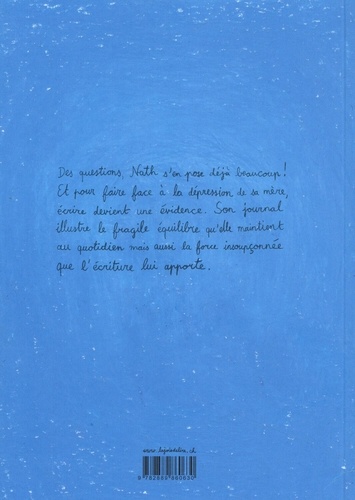 Des questions, Nath s'en pose déjà beaucoup !
Et pour faire face à la dépression de sa mère,
écrire devient une évidence. Son journal
illustre le fragile équilibre qu'elle maintient
au quotidien mais aussi la force insoupçonnée
que l'écriture lui apporte.
www.lajoiedelire.ch